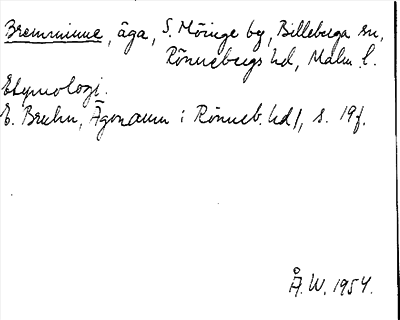 Bremminne, äga, S. Möinge by, Billeberga sn,
Rönnebergs hd, Malm. l.
Etymologi.
E. Bruhn, Ägonamn i Rönneb. hd 1, s. 19 f.
Å. W. 1954.